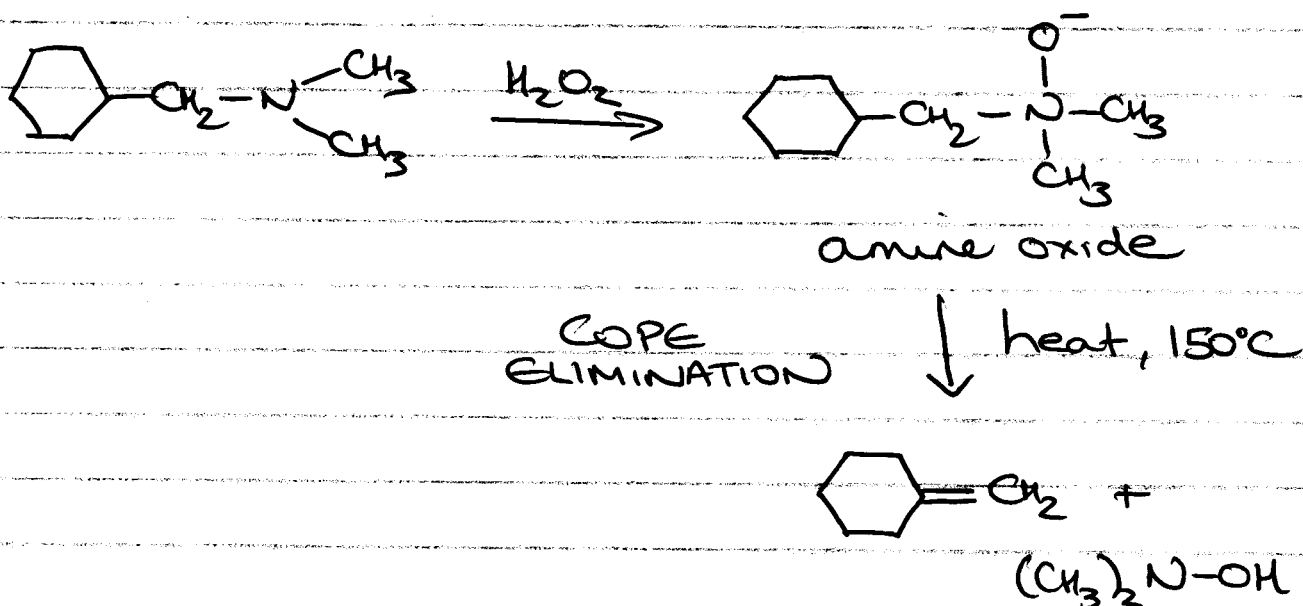 CH3
CH2-N
CH3
H2O2
O-
CH2-N-CH3
CH3
amine oxide
COPE
ELIMINATION
heat, 150°C
CH2 +
(CH3)2N-OH